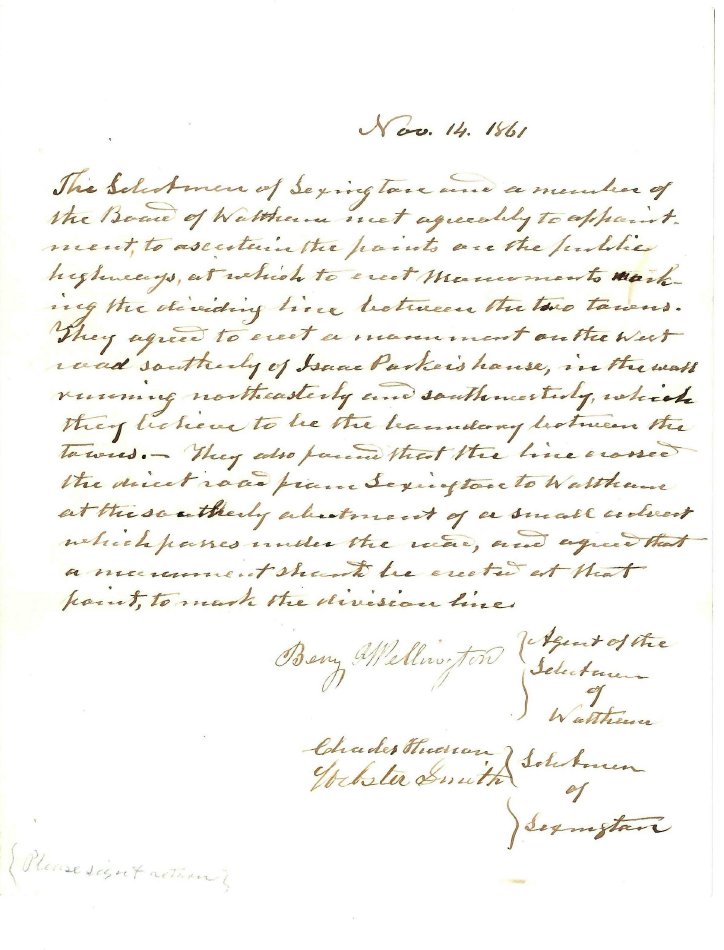 Nov. 14. 1861
The Selectmen of Lexington and a member of
the Board of Waltham met agreeably to appoint-
ment, to ascertain the points on the public
highways, at which to erect Monuments mark-
ing the dividing line between the two towns.
They agreed to erect a monument on the West
road southerly of Isaac Parker's house, in the wall
running northeasterly and southwesterly, which
they believe to be the boundary between the
towns. — They also found that the line crossed
the direct road from Lexington to Waltham
at the southerly abutment of a small culvert
which passes under the road, and agreed that
a monument should be erected at that
point, to mark the division line.
Benj Wellington } Agent of the
Selectmen
of
Waltham
Charles Hudson
Webster Smith } Selectmen
of
Lexington
{Please sign & return}